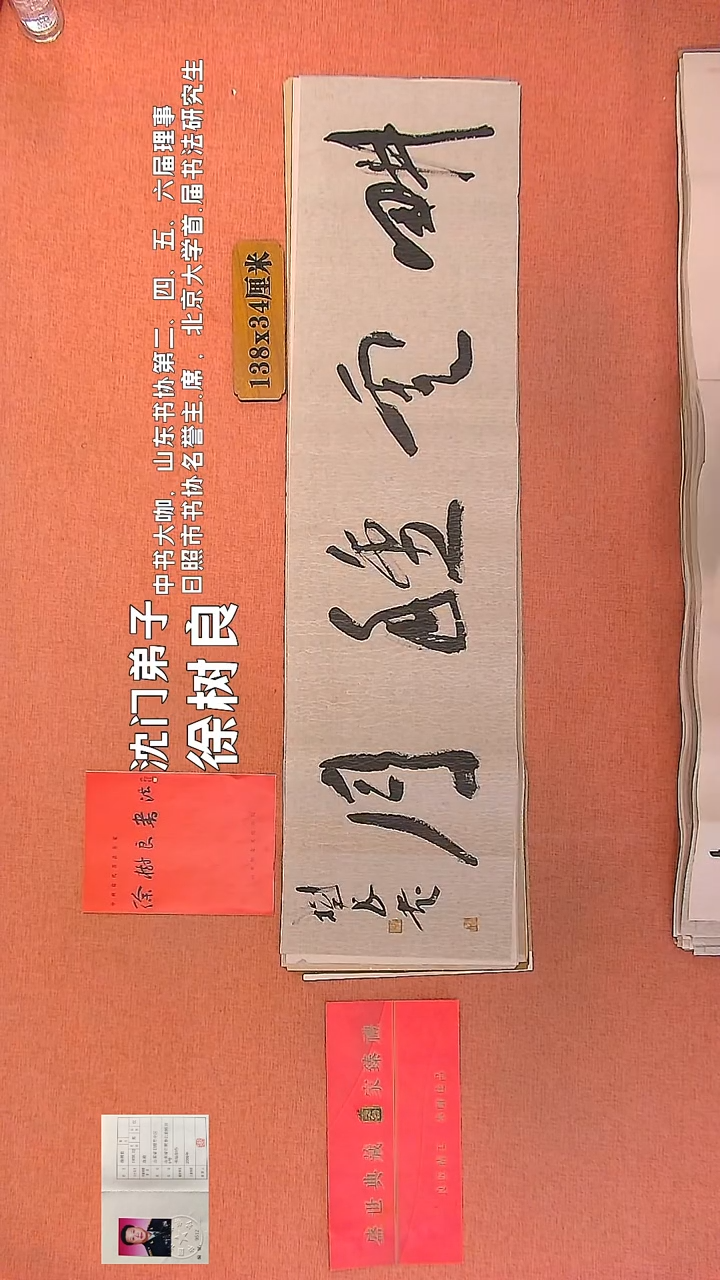 沈门弟子
徐树良
中书大咖、山东书协第二、四、五、六届理事
日照市书协名誉主席、北京大学首届书法研究生
138x34厘米
徐樹良書法
耕云種月
樹良书
盛世典藏